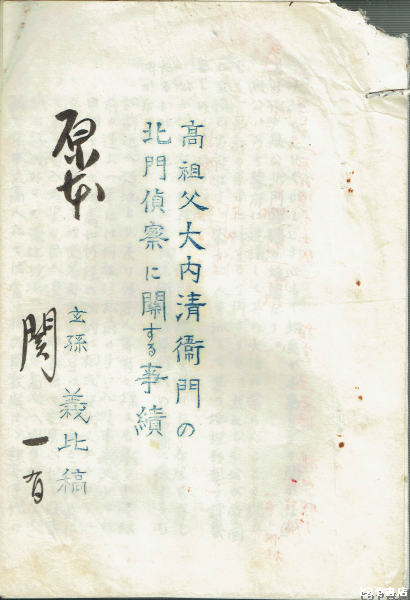 高祖父大内清衞門の
北門偵察に関する事績
原本
玄孫 義比稿
関 一有